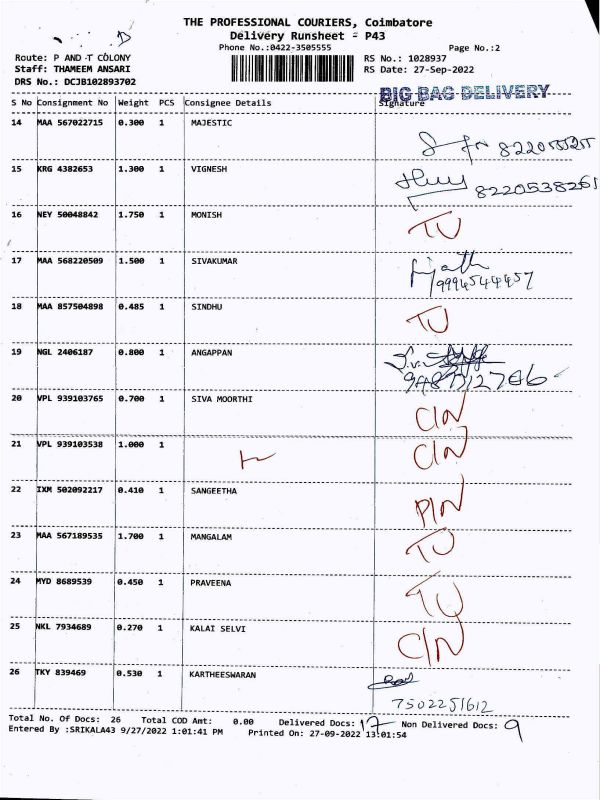 THE PROFESSIONAL COURIERS, Coimbatore
Delivery Runsheet - P43
Phone No.:0422-3505555 Page No.:2
Route: P AND T COLONY RS No.: 1028937
Staff: THAMEEM ANSARI RS Date: 27-Sep-2022
DRS No.: DCJB102893702
BIG BAG DELIVERY
S No Consignment No Weight PCS Consignee Details Signature
14 MAA 567022715 0.300 1 MAJESTIC
15 KRG 4382653 1.300 1 VIGNESH
8220538261
16 NEY 50048842 1.750 1 MONISH TU
17 MAA 568220509 1.500 1 SIVAKUMAR
9994544457
18 MAA 857504898 0.485 1 SINDHU TU
19 NGL 2406187 0.800 1 ANGAPPAN
20 VPL 939103765 0.700 1 SIVA MOORTHI CIN
21 VPL 939103538 1.000 1 CIN
22 IXM 502092217 0.410 1 SANGEETHA PIN
23 MAA 567189535 1.700 1 MANGALAM TU
24 MYD 8689539 0.450 1 PRAVEENA TU
25 NKL 7934689 0.270 1 KALAI SELVI CIN
26 TKY 839469 0.530 1 KARTHEESWARAN
7502251612
Total No. Of Docs: 26 Total COD Amt: 0.00 Delivered Docs: 17 Non Delivered Docs: 9
Entered By :SRIKALA43 9/27/2022 1:01:41 PM Printed On: 27-09-2022 13:01:54